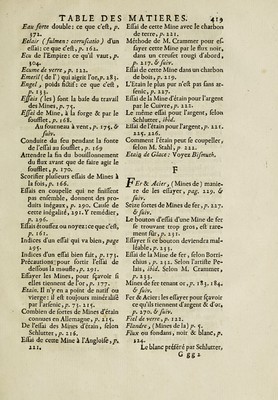 TABLE DES MATIERES. 419
Eau forte double: ce que c'est, p.
372.
Eclair (fulmen: corruscatio) d'un
essai: ce que c'est, p. 162.
Ecu de l'Empire: ce qu'il vaut, p.
304.
Ecume de verre, p. 122.
Emeril (de l') qui aigrit l'or, p. 283.
Engel, poids fictif: ce que c'est,
p. 133.
Essais (les) sont la base du travail
des Mines, p. 75.
Essai de Mine, à la forge & par le
soufflet, p. 168.
Au fourneau à vent, p. 175. &
suiv.
Conduite du feu pendant la fonte
de l'essai au soufflet, p. 169
Attendre la fin du bouillonnement
du flux avant que de faire agir le
soufflet, p. 170.
Scorifier plusieurs essais de Mines à
la fois, p. 166.
Essais en coupelle qui ne finissent
pas ensemble, donnent des produits
inégaux, p. 290. Cause de
cette inégalité, 291. Y remédier,
p. 296.
Essais étouffés ou noyez: ce que c'est,
p. 161.
Indices d'un essai qui va bien, page
295.
Indices d'un essai bien fait, p. 173.
Précautions pour sortir l'essai de
dessous la moufle, p. 291.
Essayer les Mines, pour sçavoir si
elles tiennent de l'or, p. 177.
Etain. Il n'y en a point de natif ou
vierge: il est toujours minéralisé
par l'arsenic, p. 73. 215.
Combien de sortes de Mines d'étain
connues en Allemagne, p. 215.
De l'essai des Mines d'étain, selon
Schlutter, p. 216.
Essai de cette Mine à l'Angloise, p.
221.
Essai de cette Mine avec le charbon
de terre, p. 221.
Méthode de M. Crammer pour essayer
cette Mine par le flux noir,
dans un creuset rougi d'abord,
p. 217. & suiv.
Essai de cette Mine dans un charbon
de bois, p. 219.
L'Etain le plus pur n'est pas sans arsenic,
p. 227.
Essai de la Mine d'étain pour l'argent
par le Cuivre, p. 222.
Le même essai pour l'argent, selon
Schlutter, ibid.
Essai de l'étain pour l'argent, p. 221.
225. 226.
Comment l'étain peut se coupeller,
selon M. Stahl, p. 222.
Etaig de Glace: Voyez Bismuth.
F
FER & Acier, (Mines de) maniere
de les essayer, pag. 229. &
suiv.
Seize sortes de Mines de fer, p. 227.
& suiv.
Le bouton d'essai d'une Mine de fer
se trouvant trop gros, est rarement
sûr, p. 231.
Essayer si ce bouton deviendra malléable,
p. 233.
Essai de la Mine de fer, selon Borrichius,
p. 232. Selon l'artiste Pelais,
ibid. Selon M. Crammer,
p. 233.
Mines de fer tenant or, p. 183. 184.
& suiv.
Fer & Acier: les essayer pour sçavoir
ce qu'ils tiennent d'argent & d'or,
p. 270. & suiv.
Fiel de verre, p. 122.
Flandre, (Mines de la) p. 5.
Flux ou fondans, noir & blanc, p.
124.
Le blanc préféré par Schlutter,
G g g 2